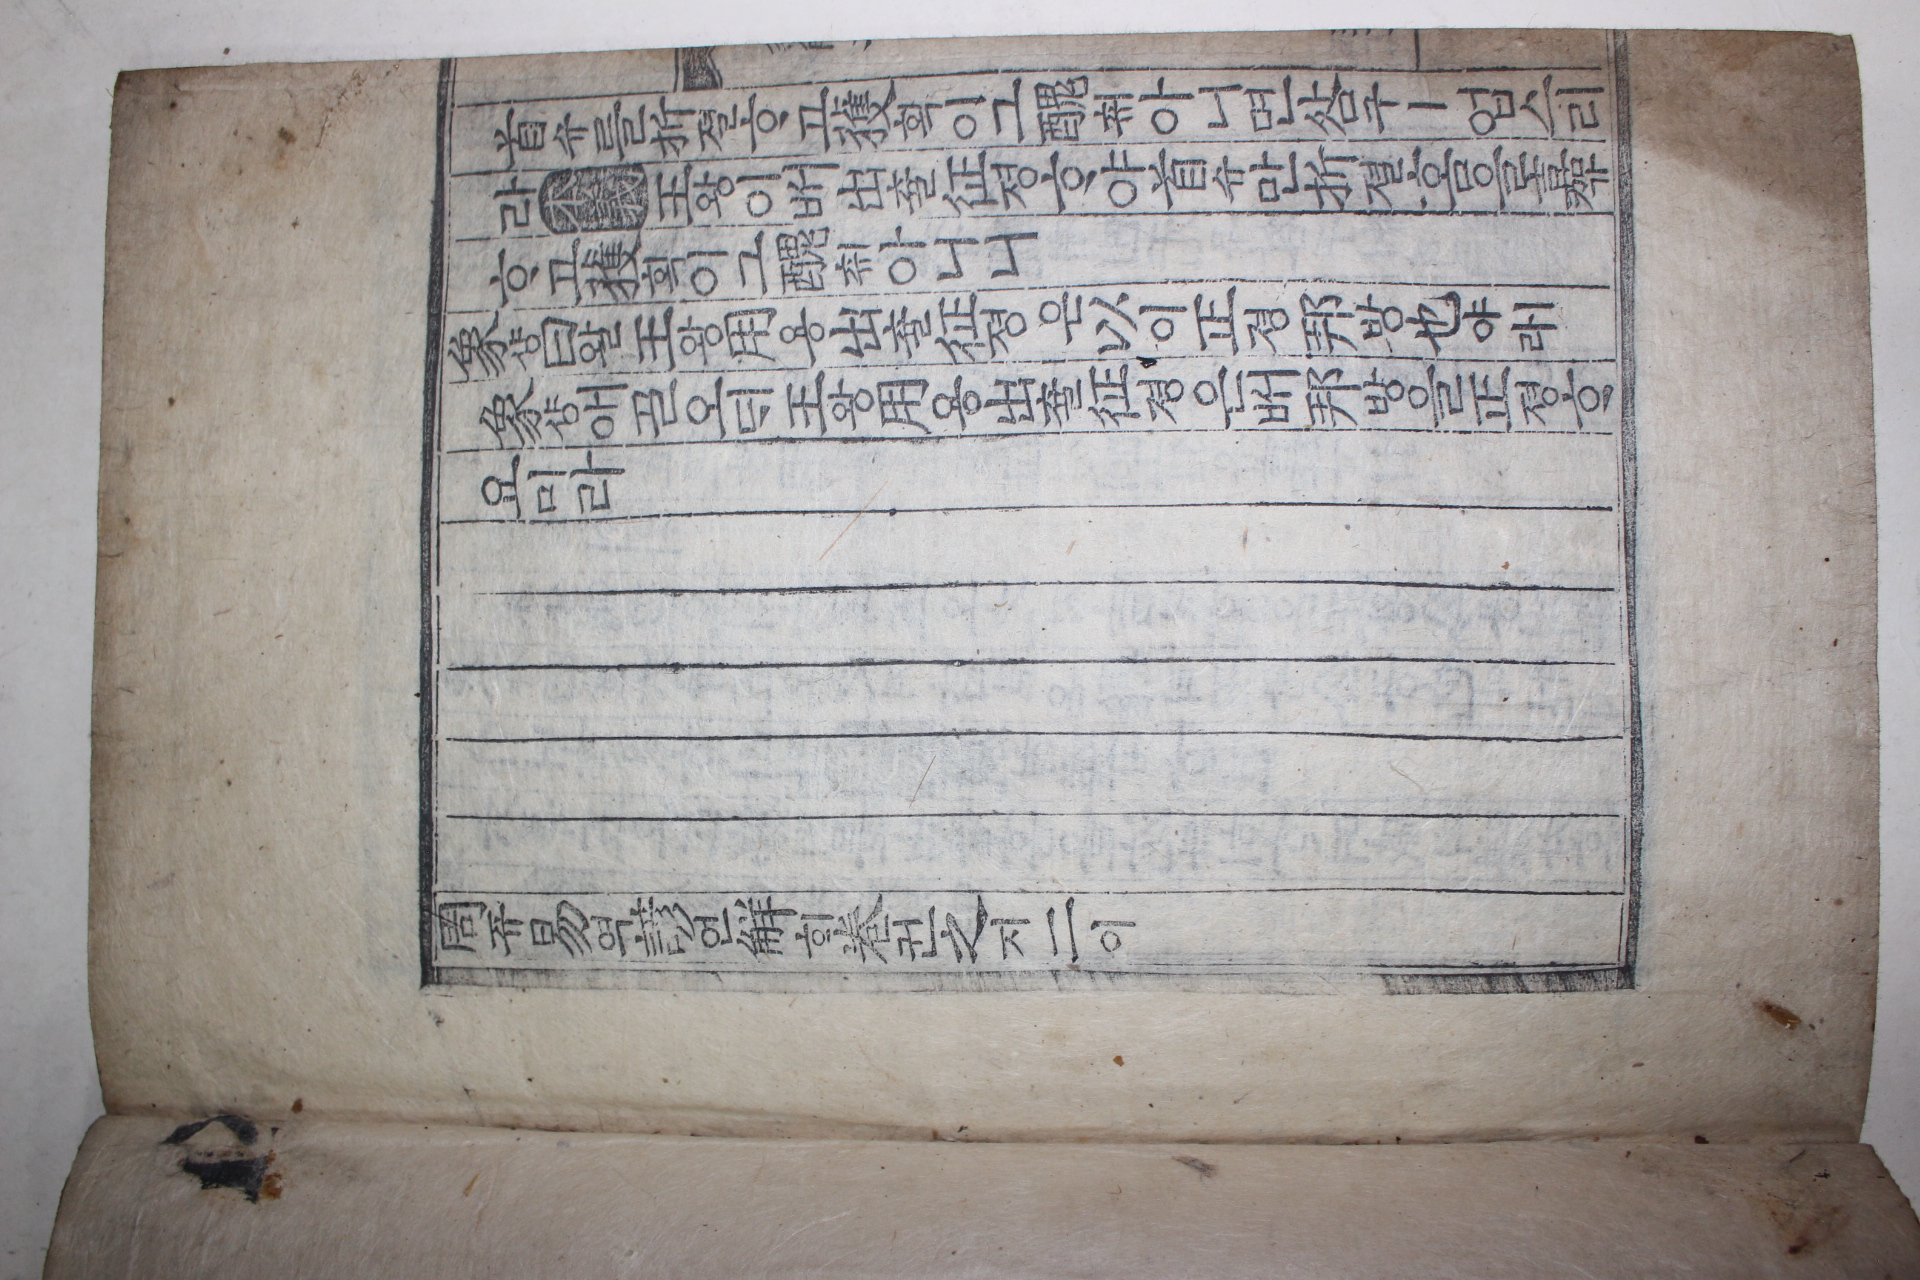 首슈를折졀ᄒᆞ고獲획이그醜취아니면咎구ㅣ업스리
라本義王왕이ᄡᅥ出츌征졍ᄒᆞ야首슈만折졀
ᄒᆞ고獲획이그醜취아니니
象샹曰왈王왕用용出츌征졍은以이正졍邦방也야래
象샹애ᄀᆞᆯ오ᄃᆡ王왕用용出츌征졍은ᄡᅥ邦방을正졍ᄒᆞ
요미라
周쥬易역諺언解ᄒᆡ卷권之지二이